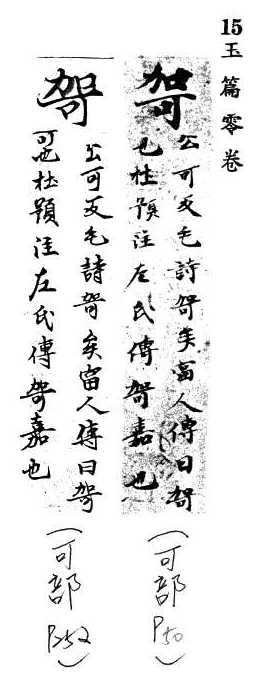 15玉篇零卷
哿
公可反毛詩哿矣富人傳曰哿
也杜預注左氏傳哿嘉也
(可部 P50)
哿
公可反毛詩哿矣富人傳曰哿
可也杜預注左氏傳哿嘉也
(可部 P252)